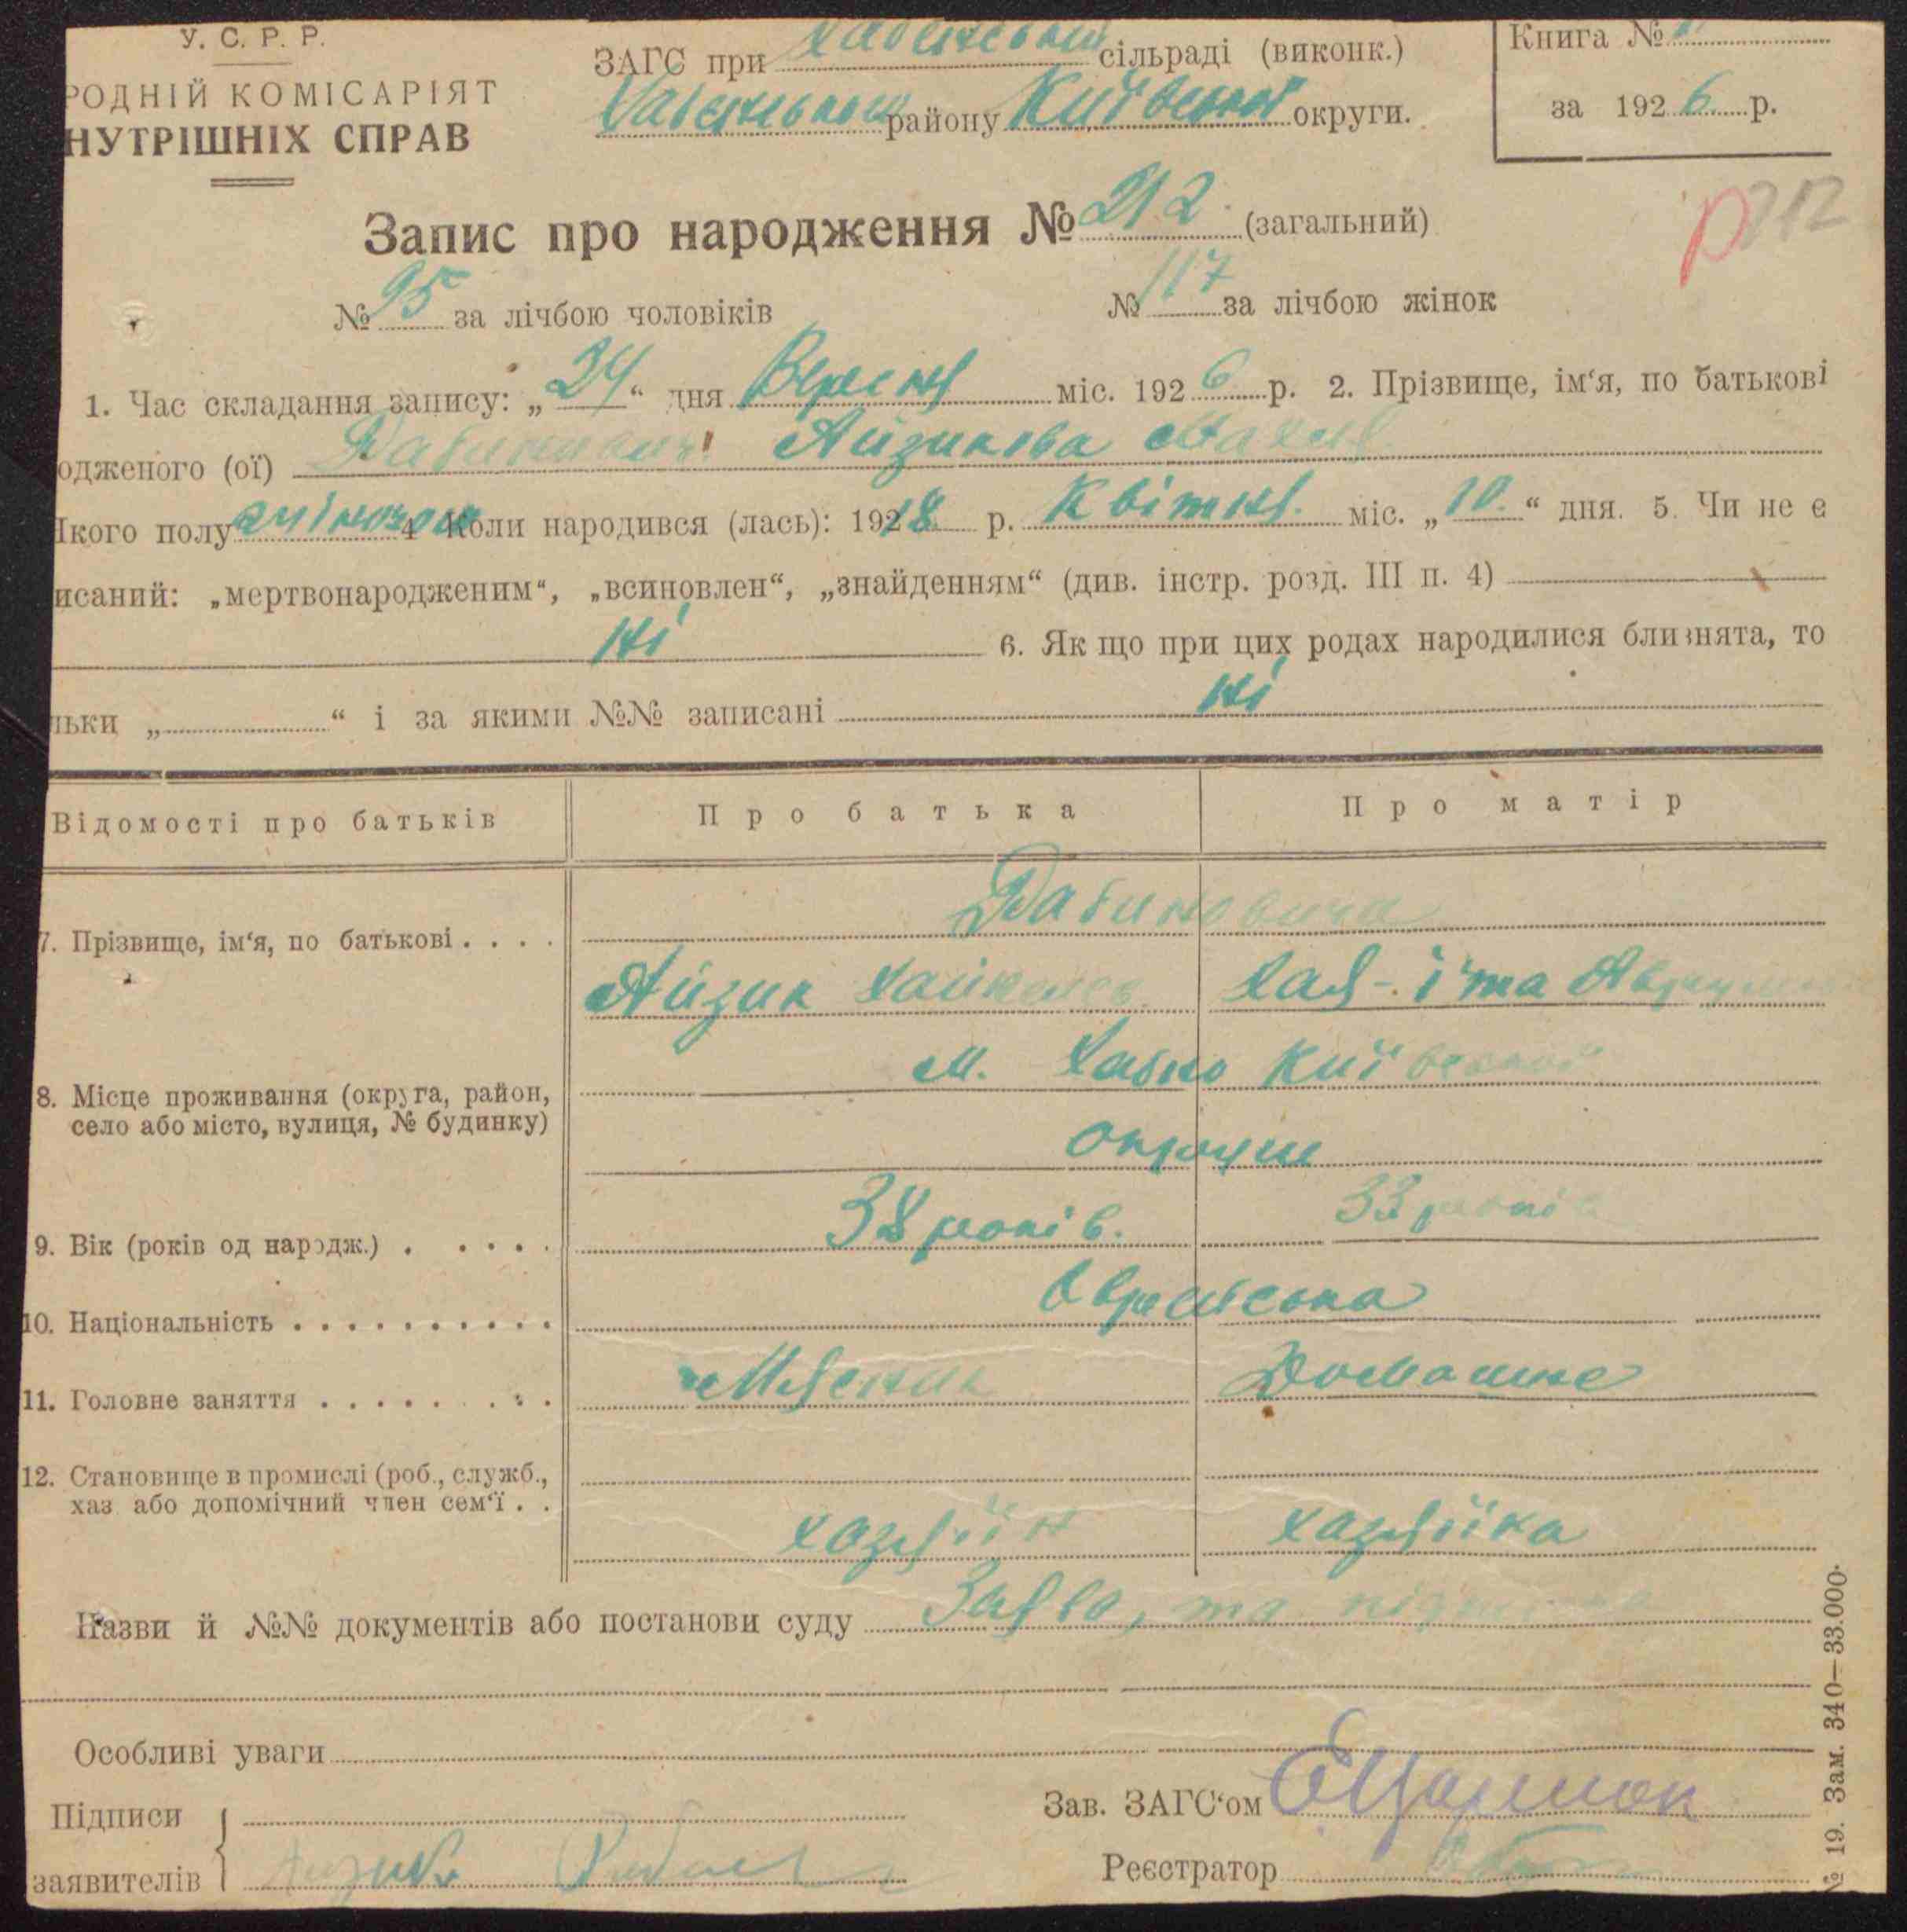 У. С. Р. Р.
РОДНІЙ КОМІСАРІЯТ
НУТРІШНІХ СПРАВ
ЗАГС при сільраді (виконк.)
району Київської округи.
Книга №
за 1926 р.
Запис про народження № 212 (загальний)
р 212
№ 95 за лічбою чоловіків
№ 117 за лічбою жінок
1. Час складання запису: „24“ дня Вересня міс. 1926 р. 2. Прізвище, ім‘я, по батькові
одженого (ої) Айзикова
Якого полу жіночого 4 Коли народився (лась): 1918 р. Квітня міс. „10.“ дня. 5. Чи не є
исаний: „мертвонародженим“, „всиновлен“, „знайденням“ (див. інстр. розд. III п. 4)
ні 6. Як що при цих родах народилися близнята, то
льки „ “ і за якими №№ записані ні
Відомості про батьків Про батька Про матір
7. Прізвище, ім‘я, по батькові . . . .
Айзик Хая-Іта
8. Місце проживання (округа, район, село або місто, вулиця, № будинку)
м. Хабно Київської
округи
9. Вік (років од народж.) . . . . . 38 років. 33 років
10. Національність . . . . . . . . . . Єврейська
11. Головне заняття . . . . . . . . . Домашнє
12. Становище в промислі (роб., служб.,
хаз або допомічний член сем‘ї . . хазяїн хазяйка
Назви й №№ документів або постанови суду Заява, та
Особливі уваги
Підписи
заявителів
Зав. ЗАГС‘ом
Реєстратор
№ 19. Зам. 340—33.000.